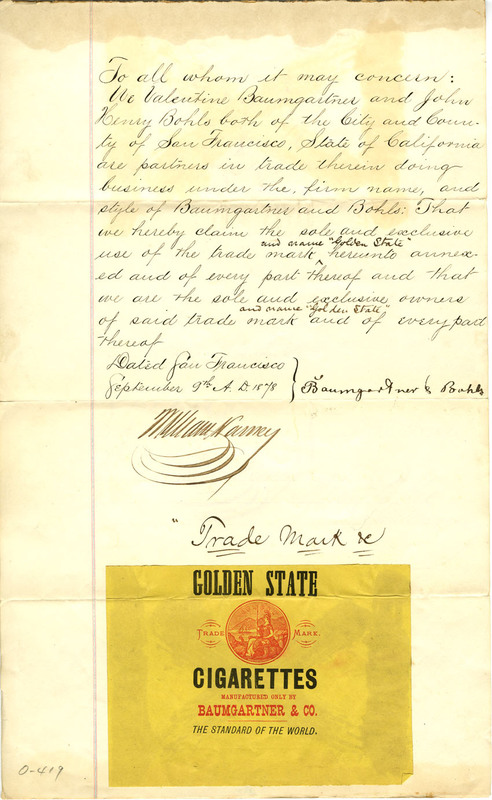 To all whom it may concern:
We Valentine Baumgartner and John
Henry Bohls both of the City and Coun-
ty of San Francisco, State of California
are partners in trade therein doing
business under the firm name, and
style of Baumgartner and Bohls: That
we hereby claim the sole and exclusive
and name "Golden State"
use of the trade mark ^ hereunto annex-
ed and of every part thereof and that
we are the sole and exclusive owners
and name "Golden State"
of said trade mark and of every part
thereof
Dated San Francisco
September 9th A. D. 1878 } Baumgartner & Bohls
William Harney
"Trade Mark &c
GOLDEN STATE
TRADE MARK.
CIGARETTES
MANUFACTURED ONLY BY
BAUMGARTNER & CO.
THE STANDARD OF THE WORLD.
0-419